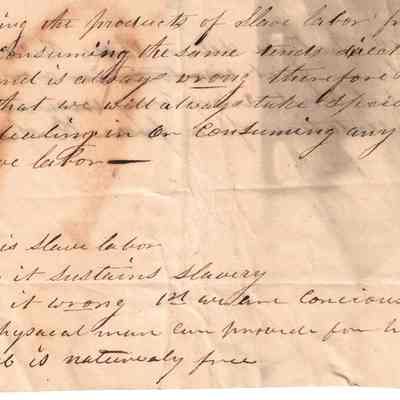 ing the products of slave labor
Consuming the same tends
and is always wrong therefore
that we will always take Special
dealing in or Consuming any
ve labor —
is slave labor
it sustains Slavery
it wrong 1st we are Concious
physacal man can provide for
is natureraly free